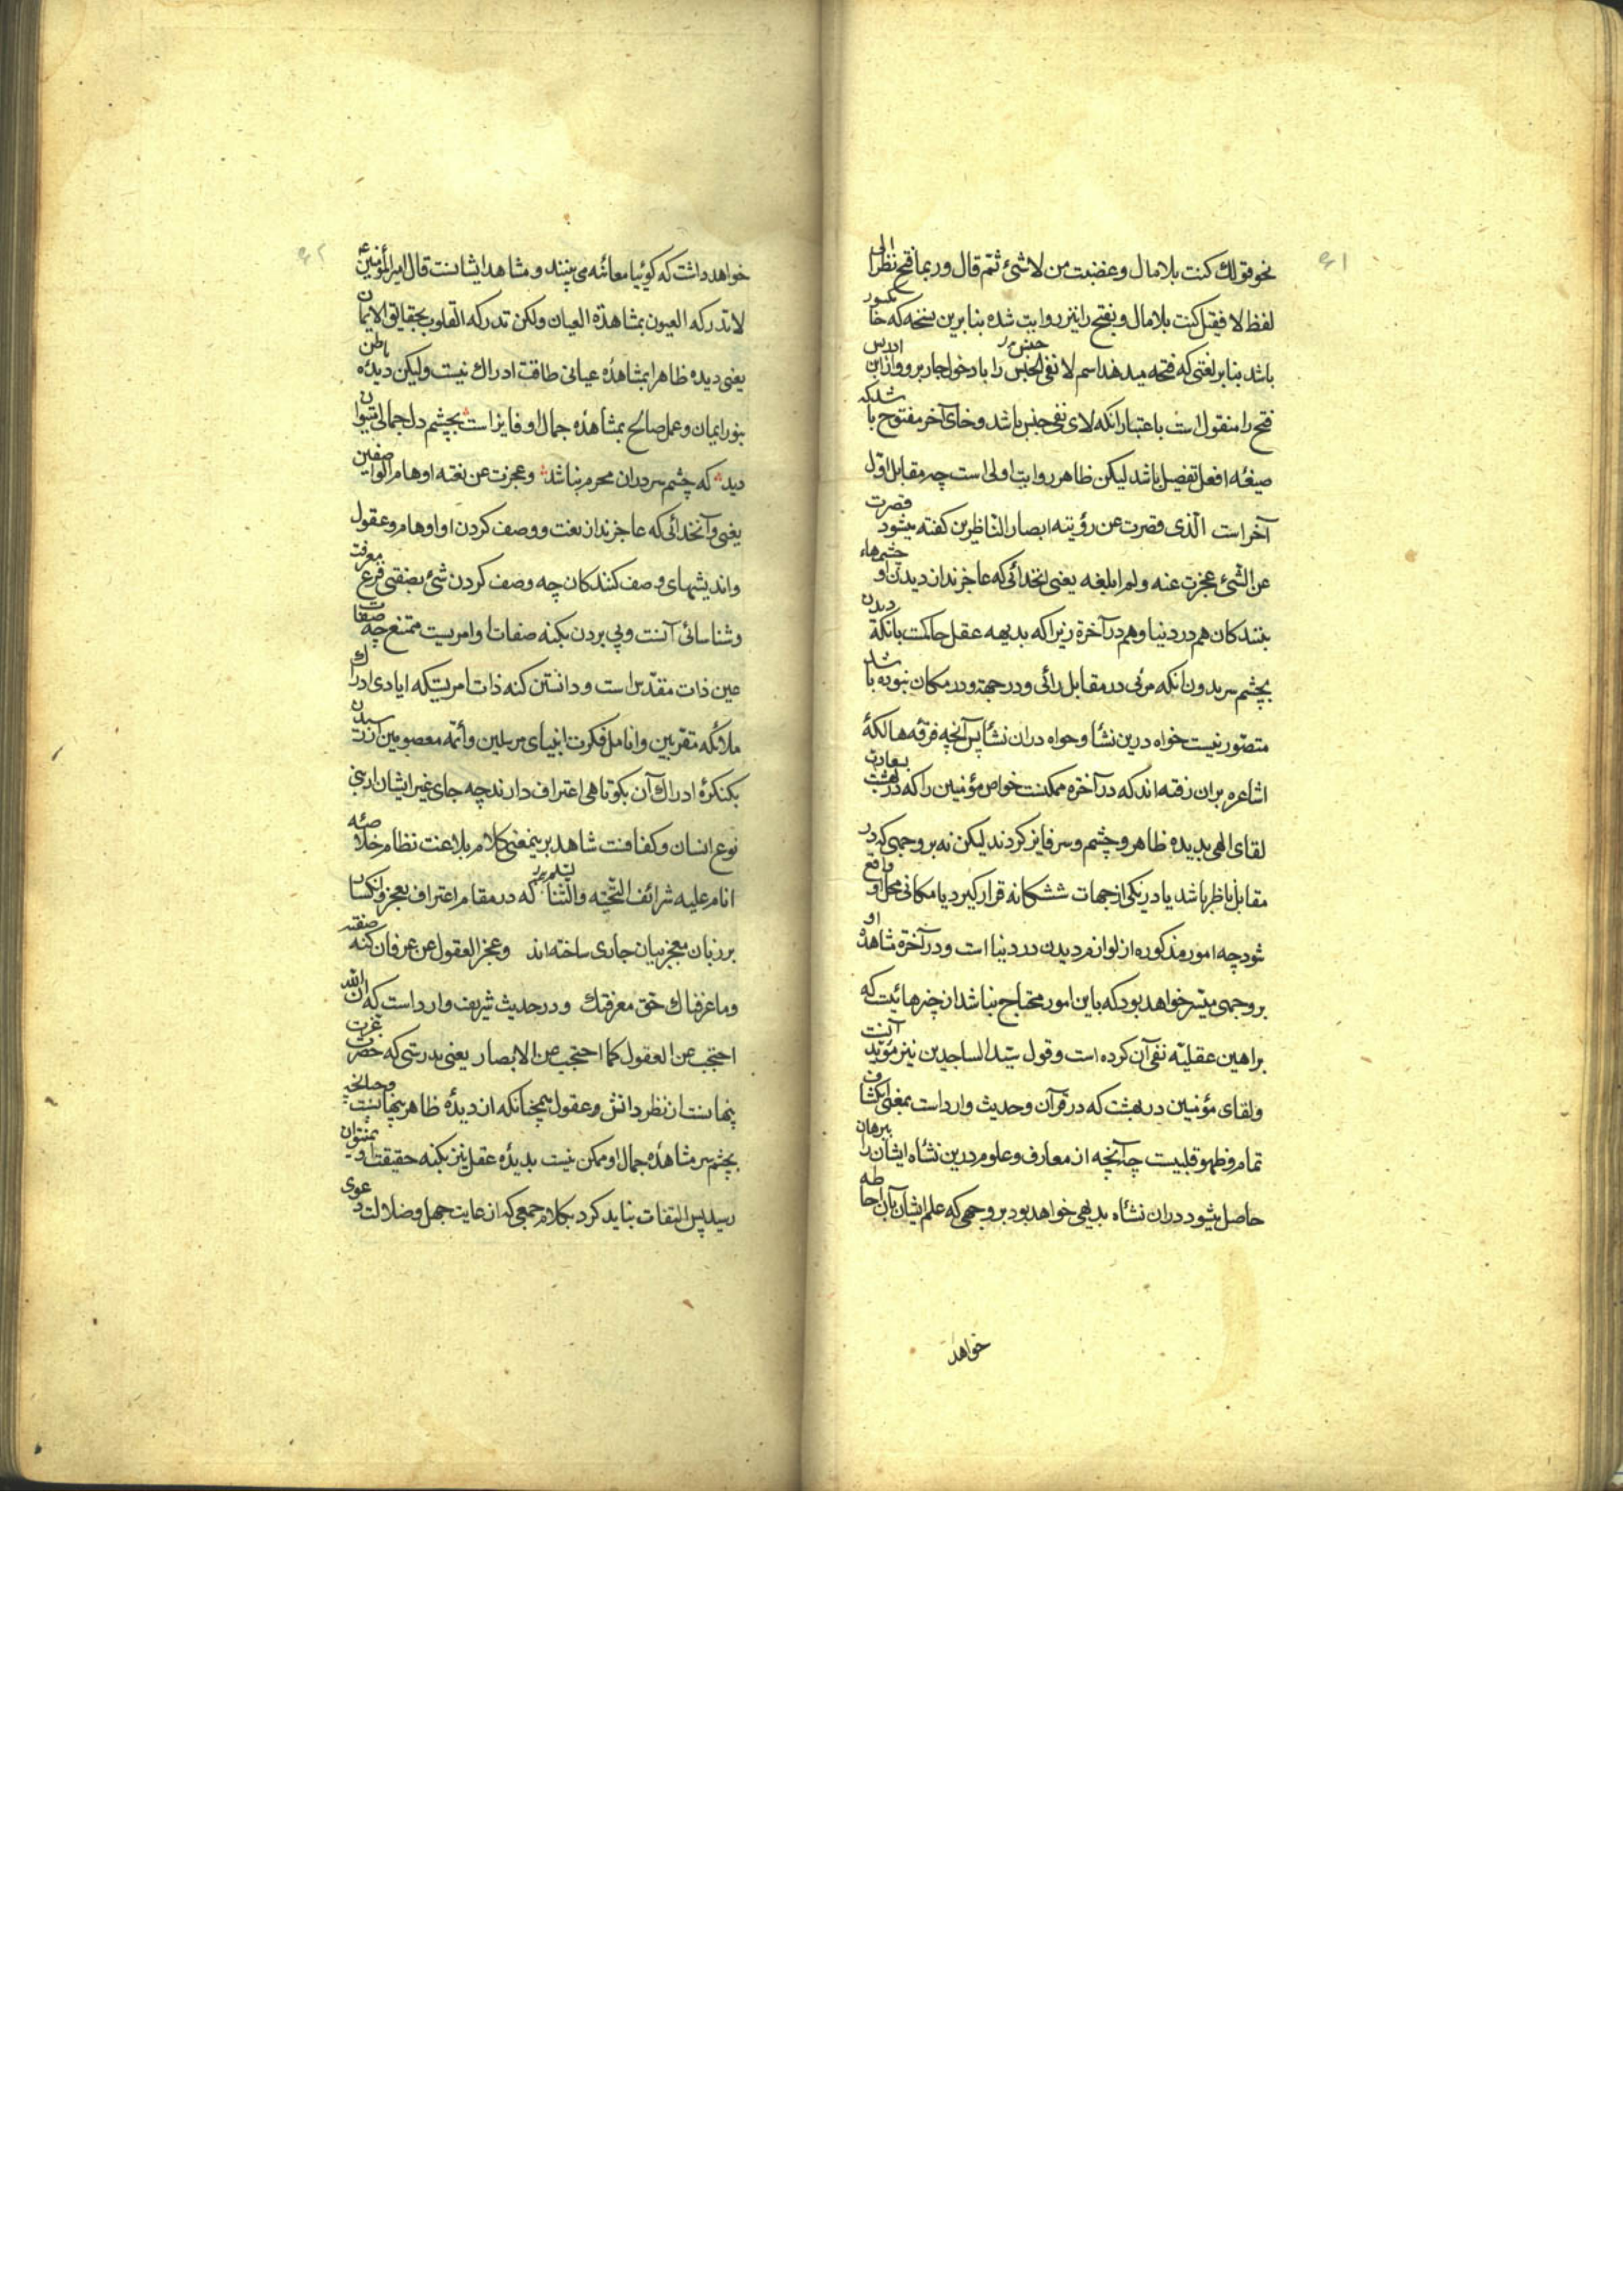 ۶۱
نحو قولك كنت بلا مال و غضبت من لا شیء ثم قال و ربما فتح نظرا الی
لفظ لا فقیل كنت بلا مال و بفتح را نیز روایت شده بنا برین نسخه كه خا مكسور
باشد بنا بر لغتی كه فتحه میدهد اسم لا نفی الجنس را با دخول جار برو و از ابن ادریس
فتح را منقول است باعتبار انكه لای نفی جنس باشد و خای آخر مفتوح با شد كه
صیغه افعل تفضیل باشد لیكن ظاهر روایت اولی است چه مقابل اول
آخر است الذی قصرت عن رؤیته ابصار الناظرین كفته میشود قصرت
عن الشیء عجزت عنه و لم ابلغه یعنی انخدائی كه عاجزند از دیدن او چشمهاء
بینندكان هم در دنیا و هم در آخرة زیرا كه بدیهه عقل حاكمست بانكه دیدن
بچشم سر بدون انكه مرئی در مقابل رائی و در جهة و در مكان نبوده با شد
متصور نیست خواه درین نشا و خواه دران نشا پس آنچه فرقه هالكه
اشاعره بران رفته اند كه در آخره ممكنست خواص مؤمنین را كه در بهشت بسعادت
لقای الهی بدیده ظاهر و چشم و سر فایز كردند لیكن نه بر وجهی كه در
مقابل ناظر باشد یا در یكی از جهات ششكانه قرار كیرد یا مكانی محل او واقع
شود چه امور مذكوره از لوازم دیدن در دنیا است و در آخرة مشاهده او
بر وجهی میسر خواهد بود كه باین امور محتاج نباشد از چیزهائیست كه
براهین عقلیه نفی آن كرده است و قول سید الساجدین نیز مؤید آنست
و لقای مؤمنین در بهشت كه در قرآن و حدیث وارد است بمعنی انكشا ف
تمام و ظهور قلبیست چه آنچه از معارف و علوم درین نشاه ایشان را ببرهان
حاصل میشود دران نشاه بدیهی خواهد بود بر وجهی كه علم ایشان بآن احا طه
خواهد
۶۲
خواهد داشت كه كوئیا معائنه می بینند و مشاهد ایشانست قال امیر المؤمنین ع
لا تدركه العیون بمشاهدة العیان ولكن تدركه القلوب بحقایق الایما ن
یعنی دیده ظاهر بمشاهده عیانی طاقت ادراك نیست ولیكن دیده باطن
بنور ایمان و عمل صالح بمشاهده جمال او فایز است بچشم دل جمالی میتوا ن
دید كه چشم سر دران محرم نباشد و عجزت عن نعته اوهام الواصفین
یعنی و آنخدائی كه عاجزند از نعت و وصف كردن او اوهام و عقول
و اندیشهای وصف كنندكان چه وصف كردن شیء بصفتی فرع معرفت
و شناسائی آنست و پی بردن بكنه صفات او امریست ممتنع چه صفات
عین ذات مقدس است و دانستن كنه ذات امریستكه ایادی ادرا ك
ملائكه مقربین و انامل فكرت انبیای مرسلین و ائمه معصومین از ر سیدن
بكنكره ادراك آن بكوتاهی اعتراف دارند چه جای غیر ایشان از بنی
نوع انسان و كفا فت شاهد برینمعنی كلام بلاغت نظام خلا صه
انام علیه شرائف التحیه و الثنا كه در مقام اعتراف بعجز و انكسا ر
بر زبان معجز بیان جاری ساخته اند و عجز العقول عن عرفان كنه صفته
و ما عرفناك حق معرفتك و در حدیث شریف وارد است كه ان الله
احتجب عن العقول كما احتجب عن الابصار یعنی بدرستی كه حضرت عزت
پنهانست از نظر دانش و عقول همچنانكه از دیده ظاهر پنهانست و چنانچه
بچشم سر مشاهده جمال او ممكن نیست بدیده عقل نیز بكنه حقیقت او نمیتوان
رسید پس التفات نباید كرد بكلام جمعی كه از غایت جهل و ضلالت د عوی